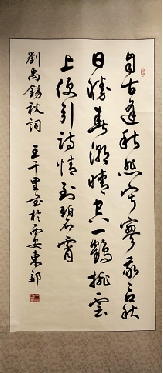 自古逢秋悲寂寥我言秋
日勝春潮晴空一鶴排雲
上便引詩情到碧霄
劉禹錫秋詞 王千里書於西安東郊